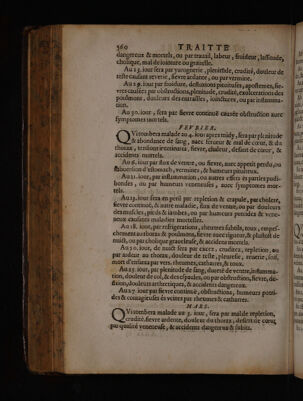 360 TRAITTE
dangereux & mortels, ou par travail, labeur, froideur, lassitude,
cholique, mal de joincture ou gravelle.
Au 23. jour sera par yurognerie, plenitude, crudité, douleur de
teste causant reverie, fievre ardante, ou par vermine.
Au 29. jour par froidure, defluxions pituitases, apostemes, fie-
vres causées par obstructions, plenitude, crudité, exulcerations des
poulmons, douleurs des entrailles, joinctures, ou par inflamma-
tion.
Au 30. jour, sera par fievre continuë causée obstruction auec
symptomes mortels.
FEVRIER.
QVi tombera malade au 4. jour apres midy, sera par plenitude
& abondance de sang, auec ferueur & mal de cœur, & du
thorax, tension interieure, fievre, chaleur, defaut de cœur, &
accidents mortels.
Au 6. jour par flux de ventre, ou fievre, auec appetit perdu, ou
subuersion d'estomach, vermines, & humeurs pituiteux.
Au 11. jour, par inflammation, ou autres effets és parties pudi-
bondes, ou par humeurs veneneuses, auec symptomes mor-
tels.
Au 13. jour sera en peril par repletion & crapule, par cholere,
fievre continuë & autre maladie, flux de ventre, ou par douleurs
des muscles, pieds & iambes, ou par humeurs putrides & vene-
neuse causans maladies mortelles.
Au 18. jour, par refrigerations, rheumes subtils, toux, empes-
chement au thorax & poulmons, fievre auec rigueur, & plustost de
nuict, ou par cholique graueleuse, & accidens mortels.
Au 20. jour, de nuict sera par excez, crudité, repletion, ou
par ardeur au thorax, douleur de teste, pleuresie, reuerie, soif,
mort s'ensuiura par vers, rheumes, catharres, & toux.
Au 25. jour, par plenitude de sang, dureté de ventre, inflamma-
tion, douleur de col, & des espaules, ou par obstruction, fievre, de-
fluxion, douleurs arthetiques, & accidents dangereux.
Au 27. jour par fievre continuë, obstructions, humeurs putri-
des & contagieuses és veines par rheumes & catharres.
MARS.
QVi tombera malade au 3. jour, sera par malade repletion,
crudité, fievre ardente, douleur du thorax, desert de cœur,
par qualité veneneuse, & accidents dangereux & subits.